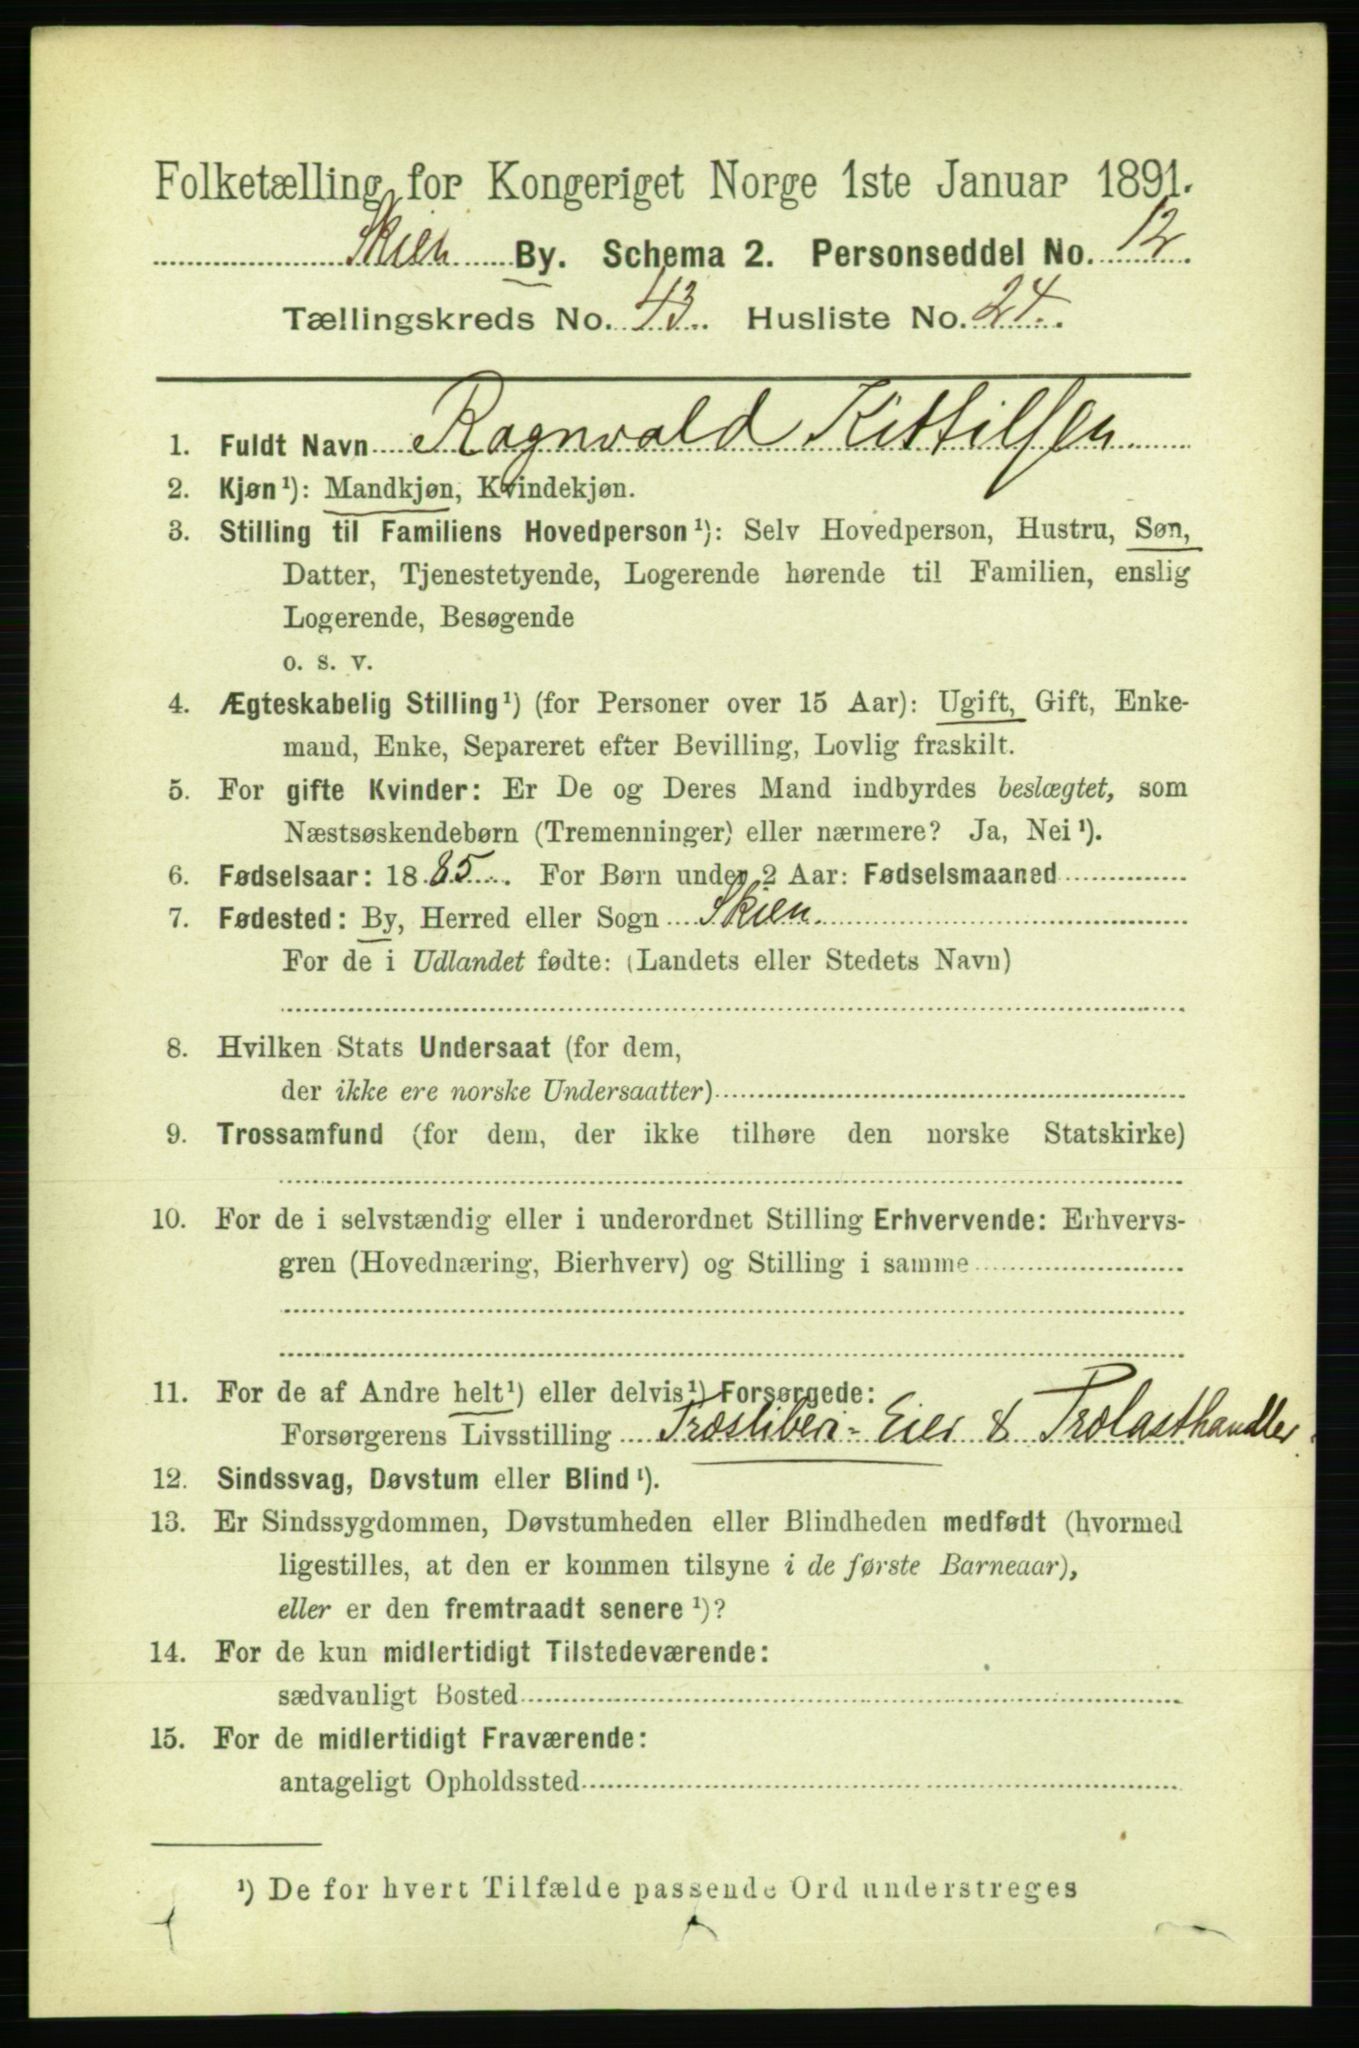 Folketælling for Kongeriget Norge 1ste Januar 1891.
Skien By. Schema 2. Personseddel No. 12.
Tællingskreds No. 43. Husliste No. 24.
1. Fuldt Navn Ragnvald Kittilsen
2. Kjøn¹): Mandkjøn, Kvindekjøn.
3. Stilling til Familiens Hovedperson¹): Selv Hovedperson, Hustru, Søn,
Datter, Tjenestetyende, Logerende hørende til Familien, enslig
Logerende, Besøgende
o. s. v.
4. Ægteskabelig Stilling¹) (for Personer over 15 Aar): Ugift, Gift, Enke-
mand, Enke, Separeret efter Bevilling, Lovlig fraskilt.
5. For gifte Kvinder: Er De og Deres Mand indbyrdes beslægtet, som
Næstsøskendebørn (Tremenninger) eller nærmere? Ja, Nei¹).
6. Fødselsaar: 1885. For Børn under 2 Aar: Fødselsmaaned
7. Fødested: By, Herred eller Sogn Skien
For de i Udlandet fødte: (Landets eller Stedets Navn)
8. Hvilken Stats Undersaat (for dem,
der ikke ere norske Undersaatter)
9. Trossamfund (for dem, der ikke tilhøre den norske Statskirke)
10. For de i selvstændig eller i underordnet Stilling Erhvervende: Erhvervs-
gren (Hovednæring, Bierhverv) og Stilling i samme
11. For de af Andre helt¹) eller delvis¹) Forsørgede:
Forsørgerens Livsstilling Træsliberi-Eier & Trælasthandler.
12. Sindssvag, Døvstum eller Blind¹).
13. Er Sindssygdommen, Døvstumheden eller Blindheden medfødt (hvormed
ligestilles, at den er kommen tilsyne i de første Barneaar),
eller er den fremtraadt senere¹)?
14. For de kun midlertidigt Tilstedeværende:
sædvanligt Bosted
15. For de midlertidigt Fraværende:
antageligt Opholdssted
¹) De for hvert Tilfælde passende Ord understreges